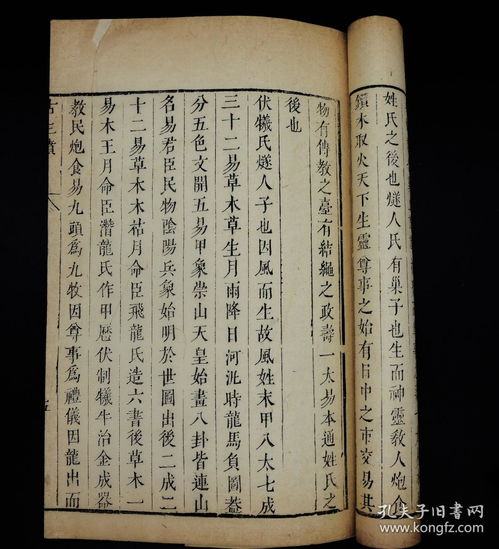 姓氏之後也燧人氏有巢子也生而神靈敎人炮食
鑽木取火天下生靈尊事之始有日中之市交易其
物有傳教之臺有結繩之政壽一太易本通姓氏之
後也
伏犧氏燧人子也因風而生故風姓末甲八太七成
三十二易草木草生月雨降日河汎時龍馬負圖蓋
分五色文開五易甲象崇山天皇始畫八卦皆連山
名易君臣民物陰陽兵象始明於世圖出後二成二
十二易草木木枯月命臣飛龍氏造六書後草木一
易木王月命臣潛龍氏作甲曆伏制犧牛冶金成器
教民炮食易九頭爲九牧因尊事爲禮儀因龍出而
古三墳
五
孔夫子旧书网
www.kongfz.com